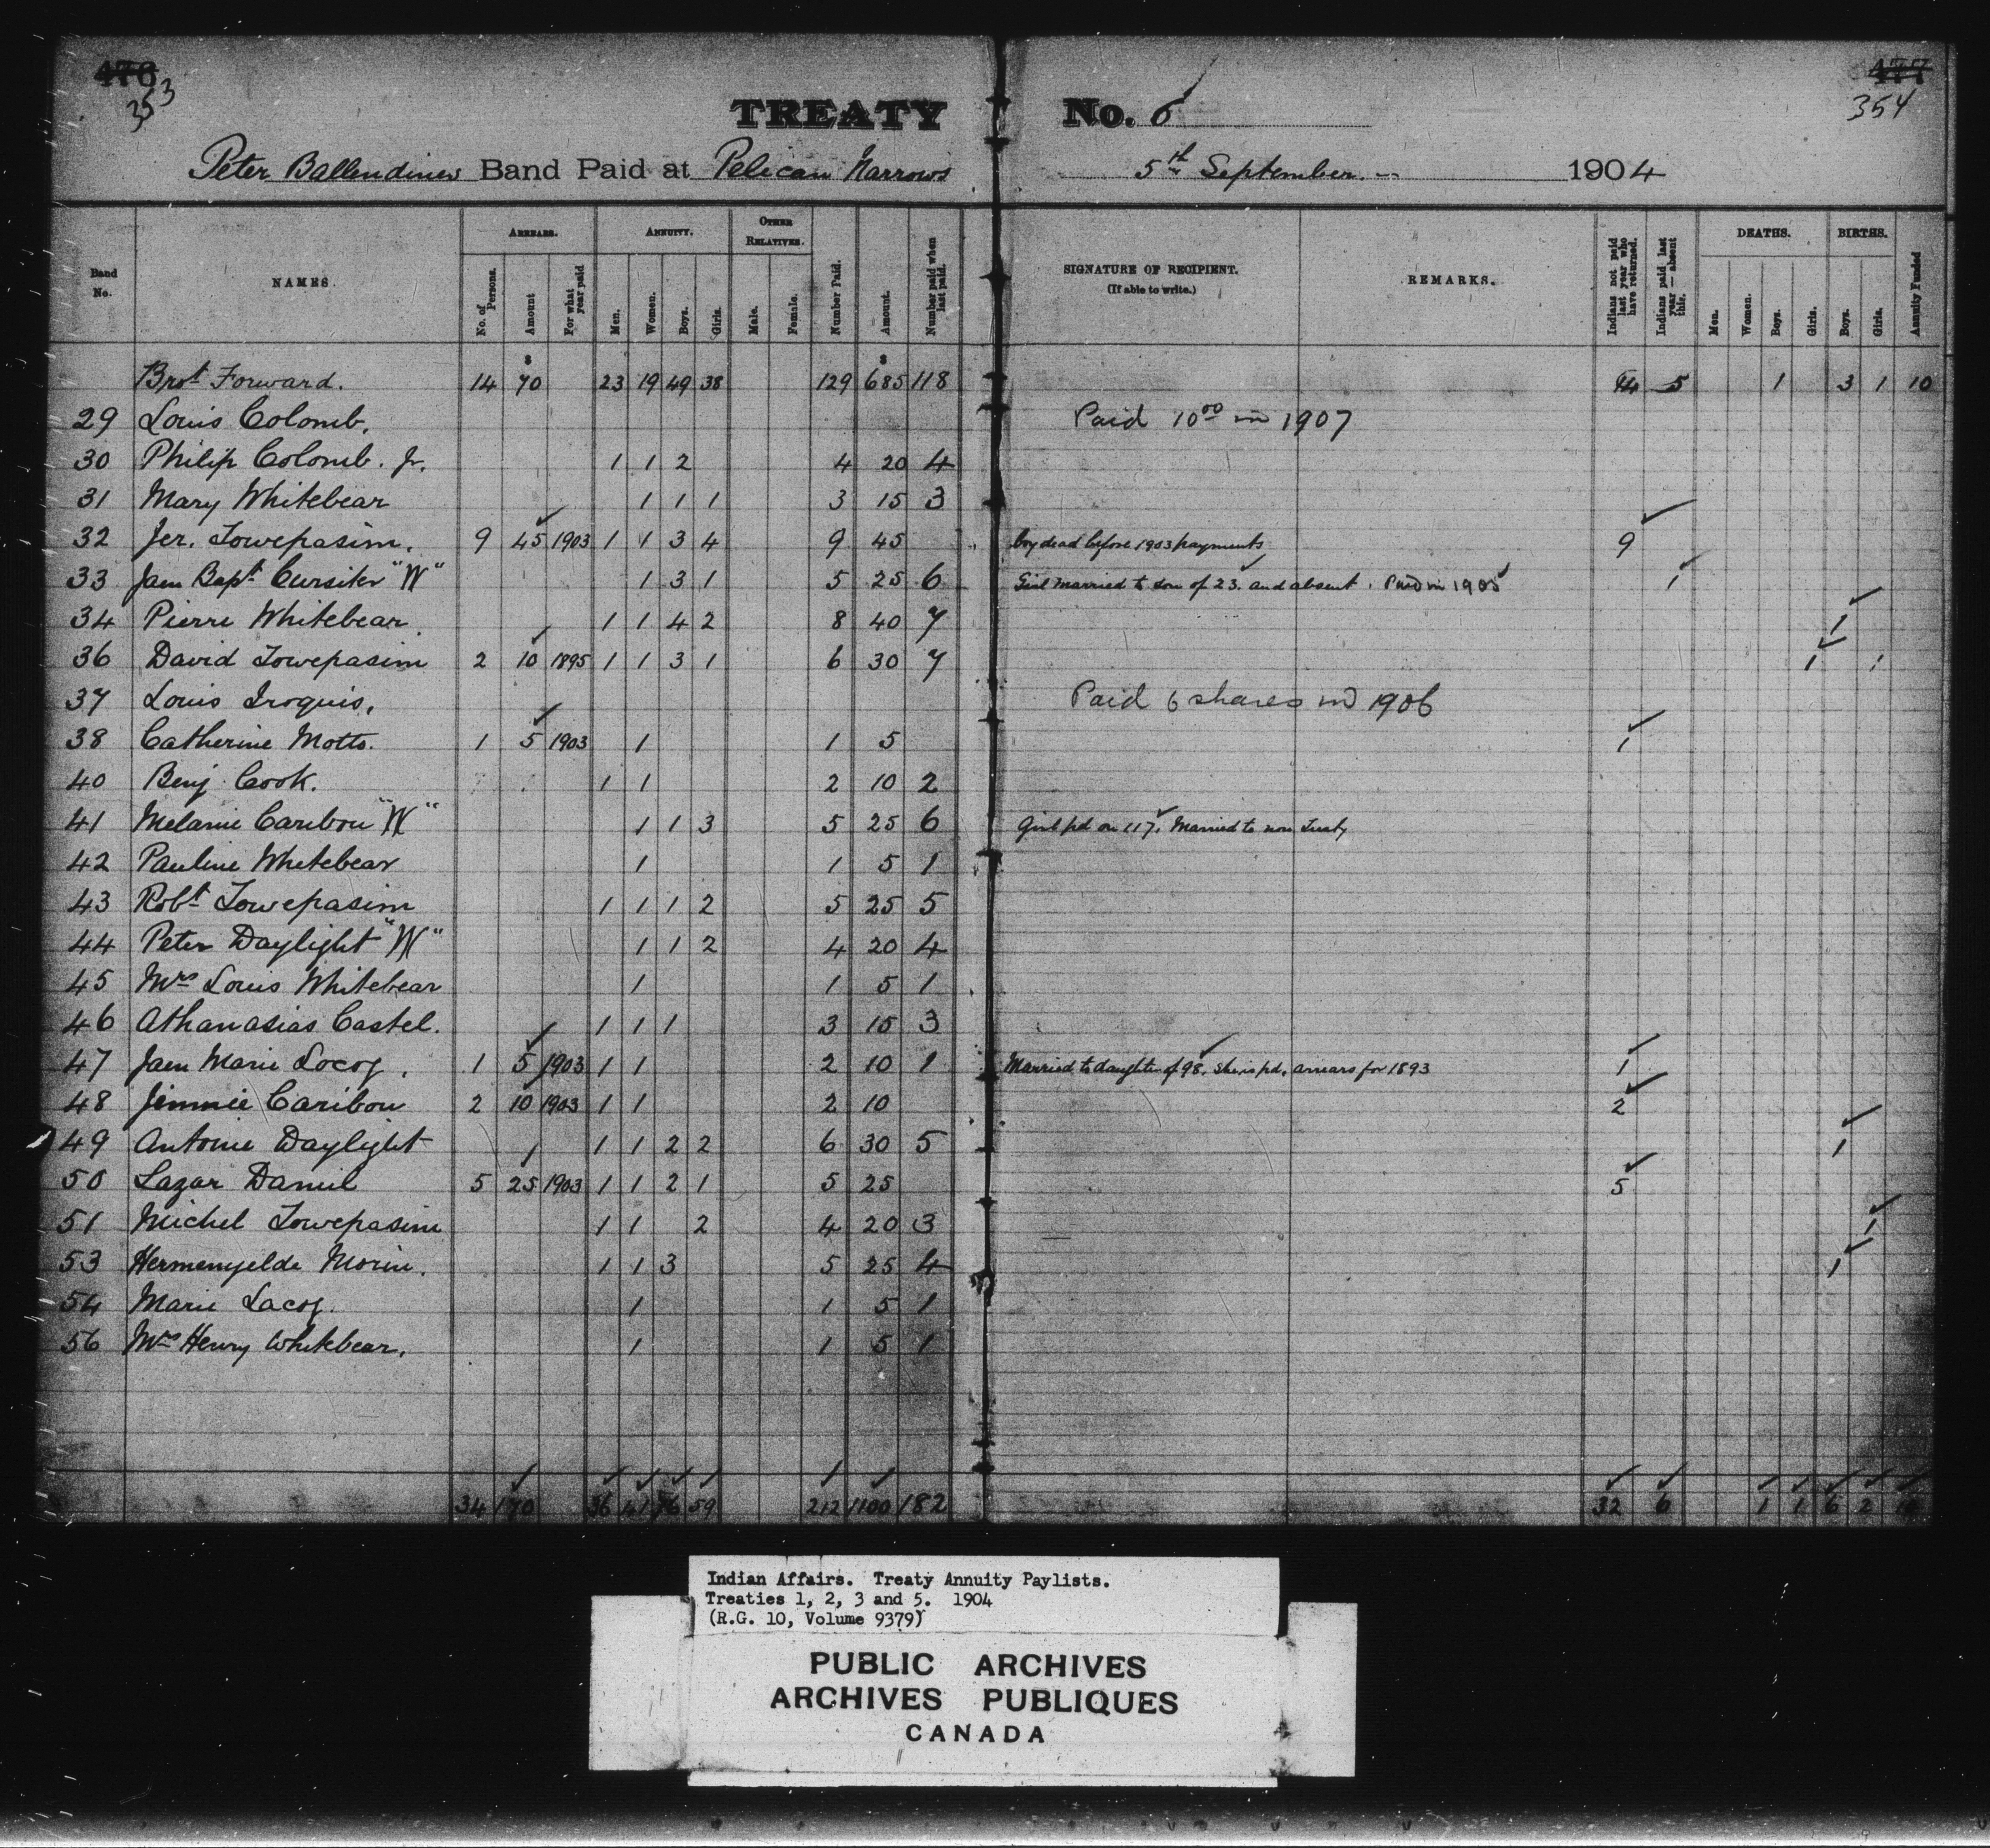 476 477
353 354
TREATY No. 6
Peter Ballendines Band Paid at Pelican Narrows 5th September. 1904
Band No. NAMES. ARREARS. No. of Persons. Amount For what year paid ANNUITY. Men. Women. Boys. Girls. OTHER RELATIVES. Male. Female. Number Paid. Amount. Number paid when last paid. SIGNATURE OF RECIPIENT. (If able to write.) REMARKS. Indians not paid last year who have returned. Indians paid last year — absent this. DEATHS. Men. Women. Boys. Girls. BIRTHS. Boys. Girls. Annuity Funded
$ $
Brot Forward. 14 70 23 19 49 38 129 685 118 14 5 1 3 1 10
29 Louis Colomb. Paid 10 00 in 1907
30 Philip Colomb. Jr. 1 1 2 4 20 4
31 Mary Whitebear 1 1 1 3 15 3
32 Jer. Towepasim. 9 45 1903 1 1 3 4 9 45 boy dead before 1903 payments 9
33 Jaen Bapt Cursiter "W" 1 3 1 5 25 6 Girl married to son of 23. and absent. Paid in 1905 1
34 Pierre Whitebear 1 1 4 2 8 40 7 1
36 David Towepasim 2 10 1895 1 1 3 1 6 30 7 1 1
37 Louis Iroquis. Paid 6 shares in 1906
38 Catherine Motts. 1 5 1903 1 1 5 1
40 Benj Cook. 1 1 2 10 2
41 Melanie Caribou "W" 1 1 3 5 25 6 Girl pd on 117. Married to non Treaty
42 Pauline Whitebear 1 1 5 1
43 Robt Towepasim 1 1 1 2 5 25 5
44 Peter Daylight "W" 1 1 2 4 20 4
45 Mrs Louis Whitebear 1 1 5 1
46 Athanasias Castel. 1 1 1 3 15 3
47 Jaen Marie Locog. 1 5 1903 1 1 2 10 1 Married to daughter of 98. She is pd. arrears for 1893 1
48 Jimmie Caribou 2 10 1903 1 1 2 10 2
49 Antoine Daylight 1 1 2 2 6 30 5 1
50 Lazar Daniel 5 25 1903 1 1 2 1 5 25 5
51 Michel Towepasim 1 1 2 4 20 3 1
53 Hermenyelde Morin. 1 1 3 5 25 4 1
54 Marie Lacog. 1 1 5 1
56 Mrs Henry Whitebear. 1 1 5 1
34 170 36 41 76 59 212 1100 182 32 6 1 1 6 2 10
Indian Affairs. Treaty Annuity Paylists.
Treaties 1, 2, 3 and 5. 1904
(R.G. 10, Volume 9379)
PUBLIC ARCHIVES
ARCHIVES PUBLIQUES
CANADA